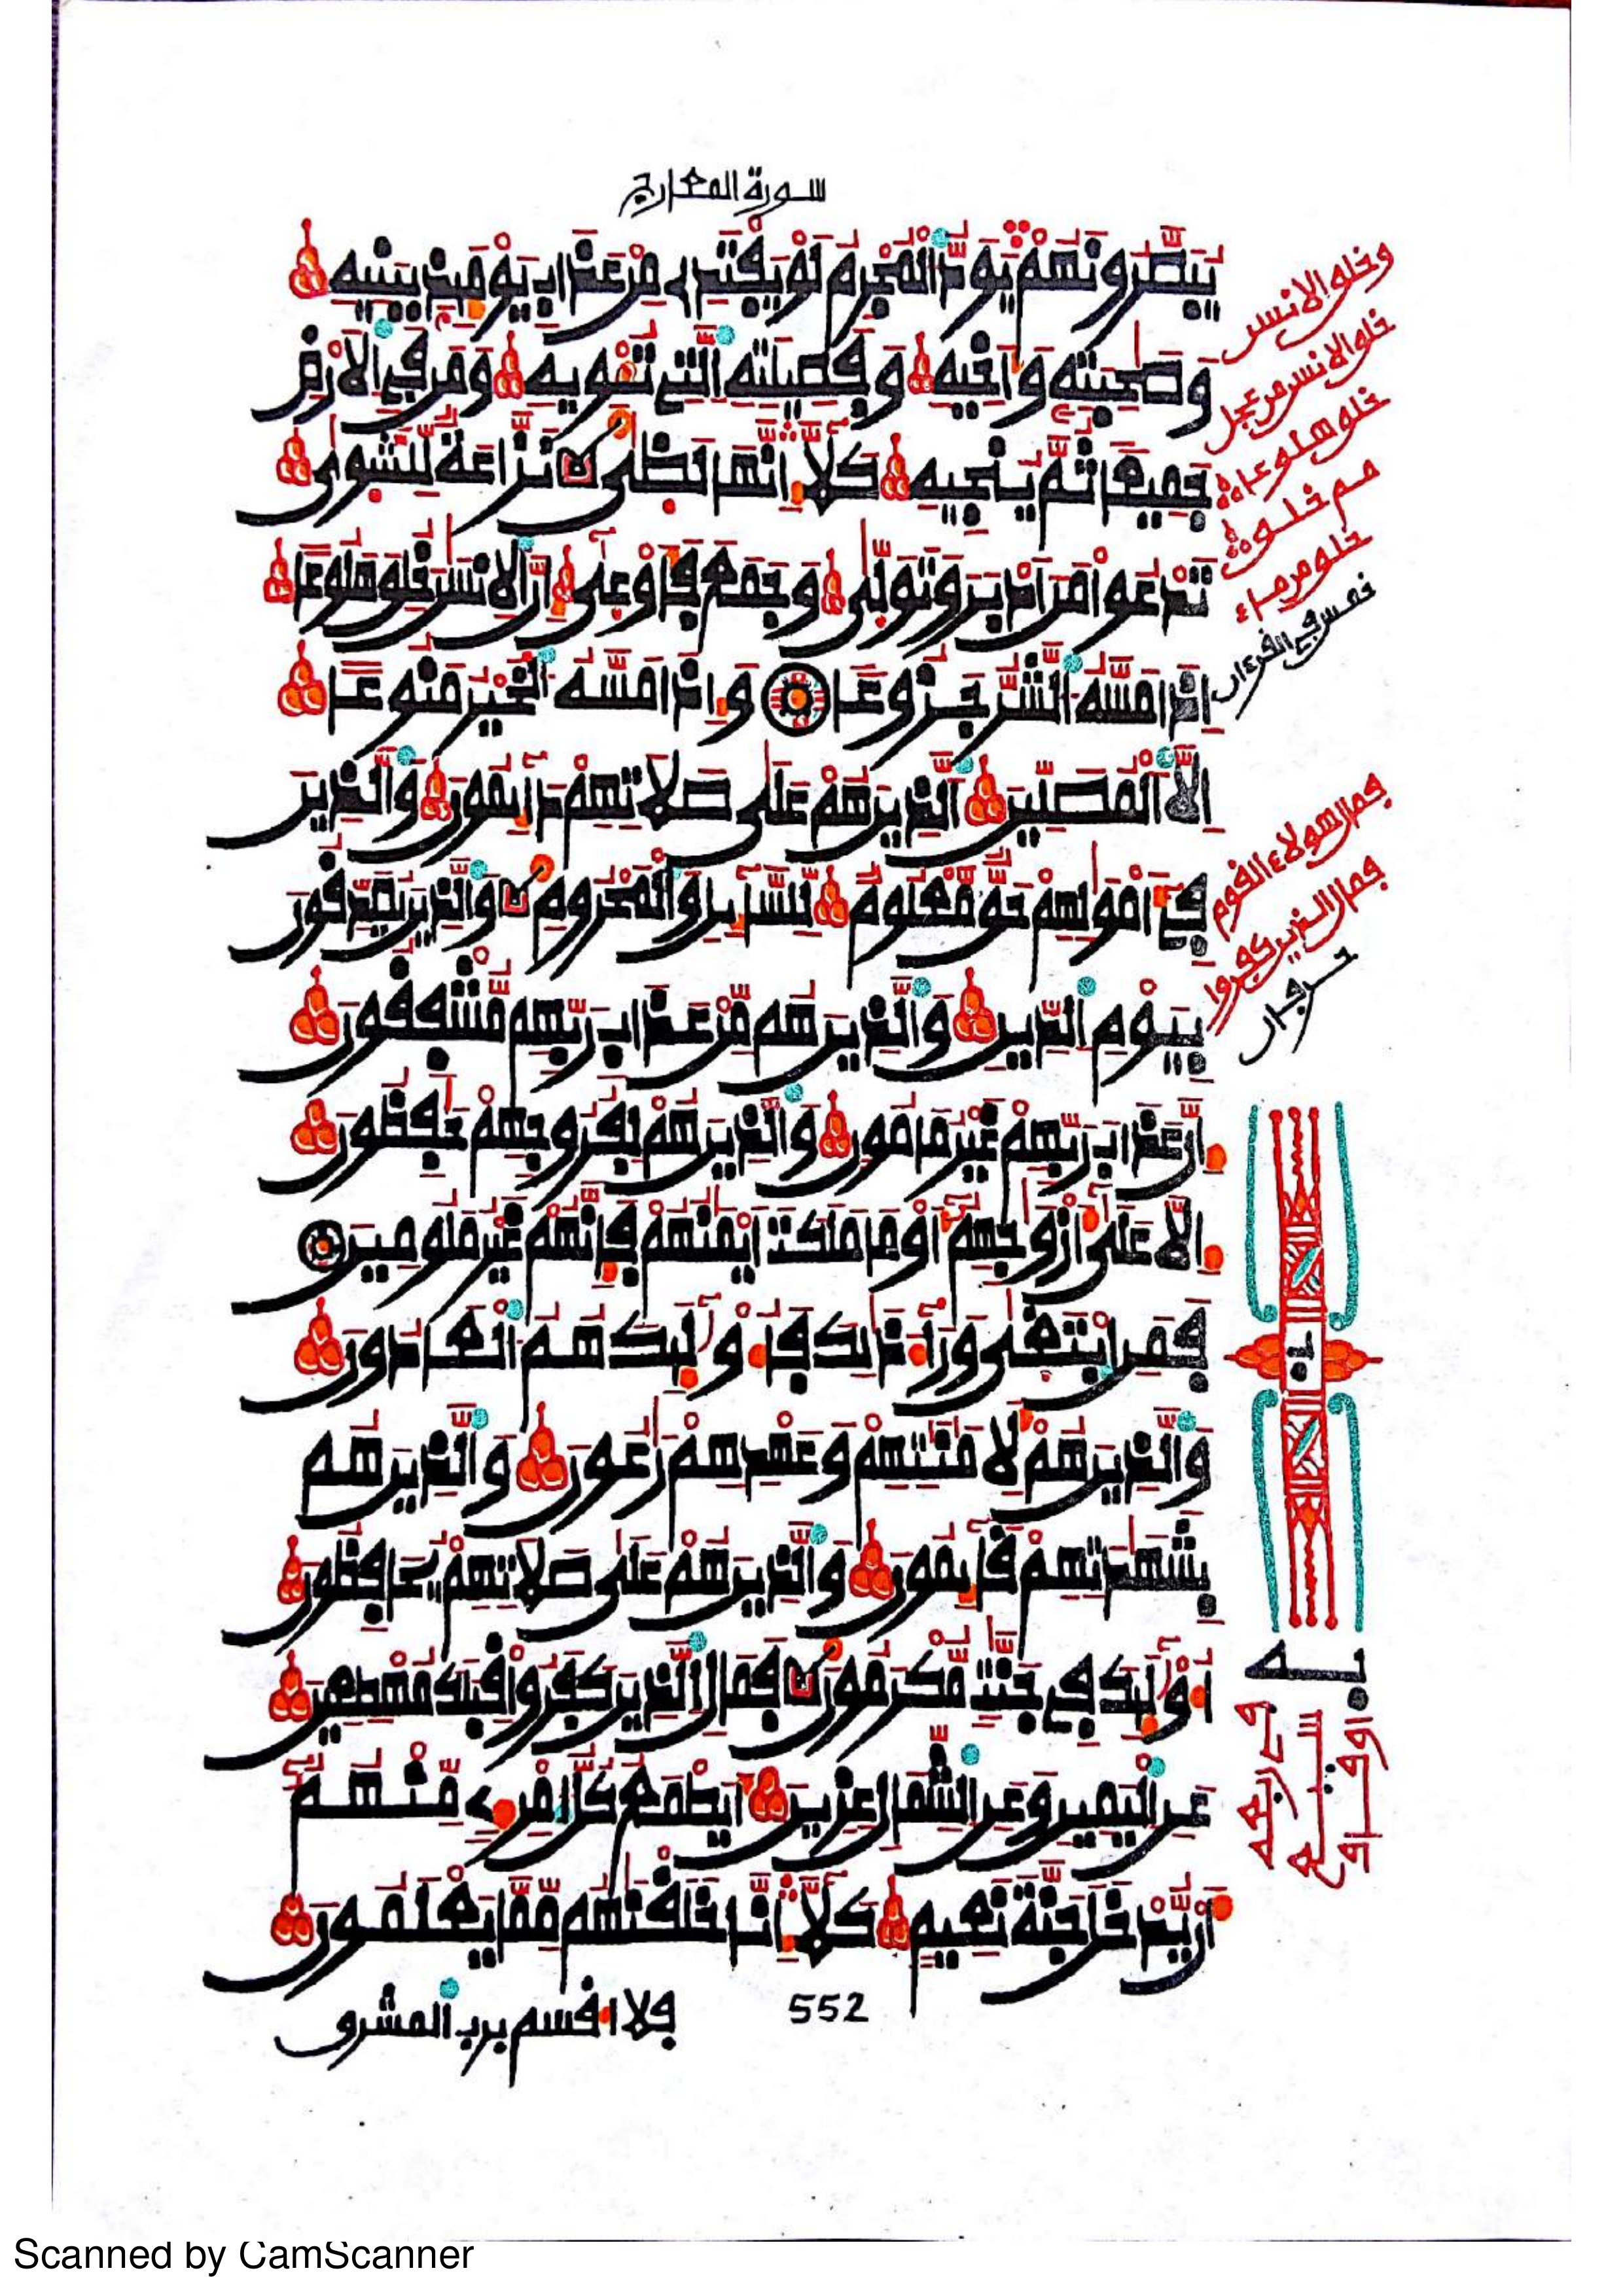 سورة المعارج
يبصرونهم يود المجرم لو يفتدى من عذاب يومئذ ببنيه
وصحبته وأخيه وفصيلته التى تئويه ومن فى الارض
جميعا ثم ينجيه كلا إنها لظى نزاعة للشوى
تدعوا من ادبر وتولى وجمع فأوعى إن الانسن خلق هلوعا
إذا مسه الشر جزوعا وإذا مسه الخير منوعا
إلا المصلين الذين هم على صلاتهم دايمون والذين
فى أمولهم حق معلوم للسايل والمحروم والذين يصدقون
بيوم الدين والذين هم من عذاب ربهم مشفقون
إن عذاب ربهم غير مامون والذين هم لفروجهم حفظون
إلا على أزوجهم أو ما ملكت أيمنهم فإنهم غير ملومين
فمن ابتغى ورآء ذلك فأولئك هم العادون
والذين هم لامنتهم وعهدهم رعون والذين هم
بشهدتهم قايمون والذين هم على صلاتهم يحافظون
أولئك فى جنت مكرمون فمال الذين كفروا قبلك مهطعين
عن اليمين وعن الشمال عزين أيطمع كل امرئ منهم
أن يدخل جنة نعيم كلا إنا خلقنهم مما يعلمون
552
فلا اقسم برب المشرق
وخلق الانسن
خلق الانسن من عجل
خلق هلوعا
خلق من ماء
خمس فى القرءان
فمال هولاء القوم
فمال الذين كفروا
حرفان